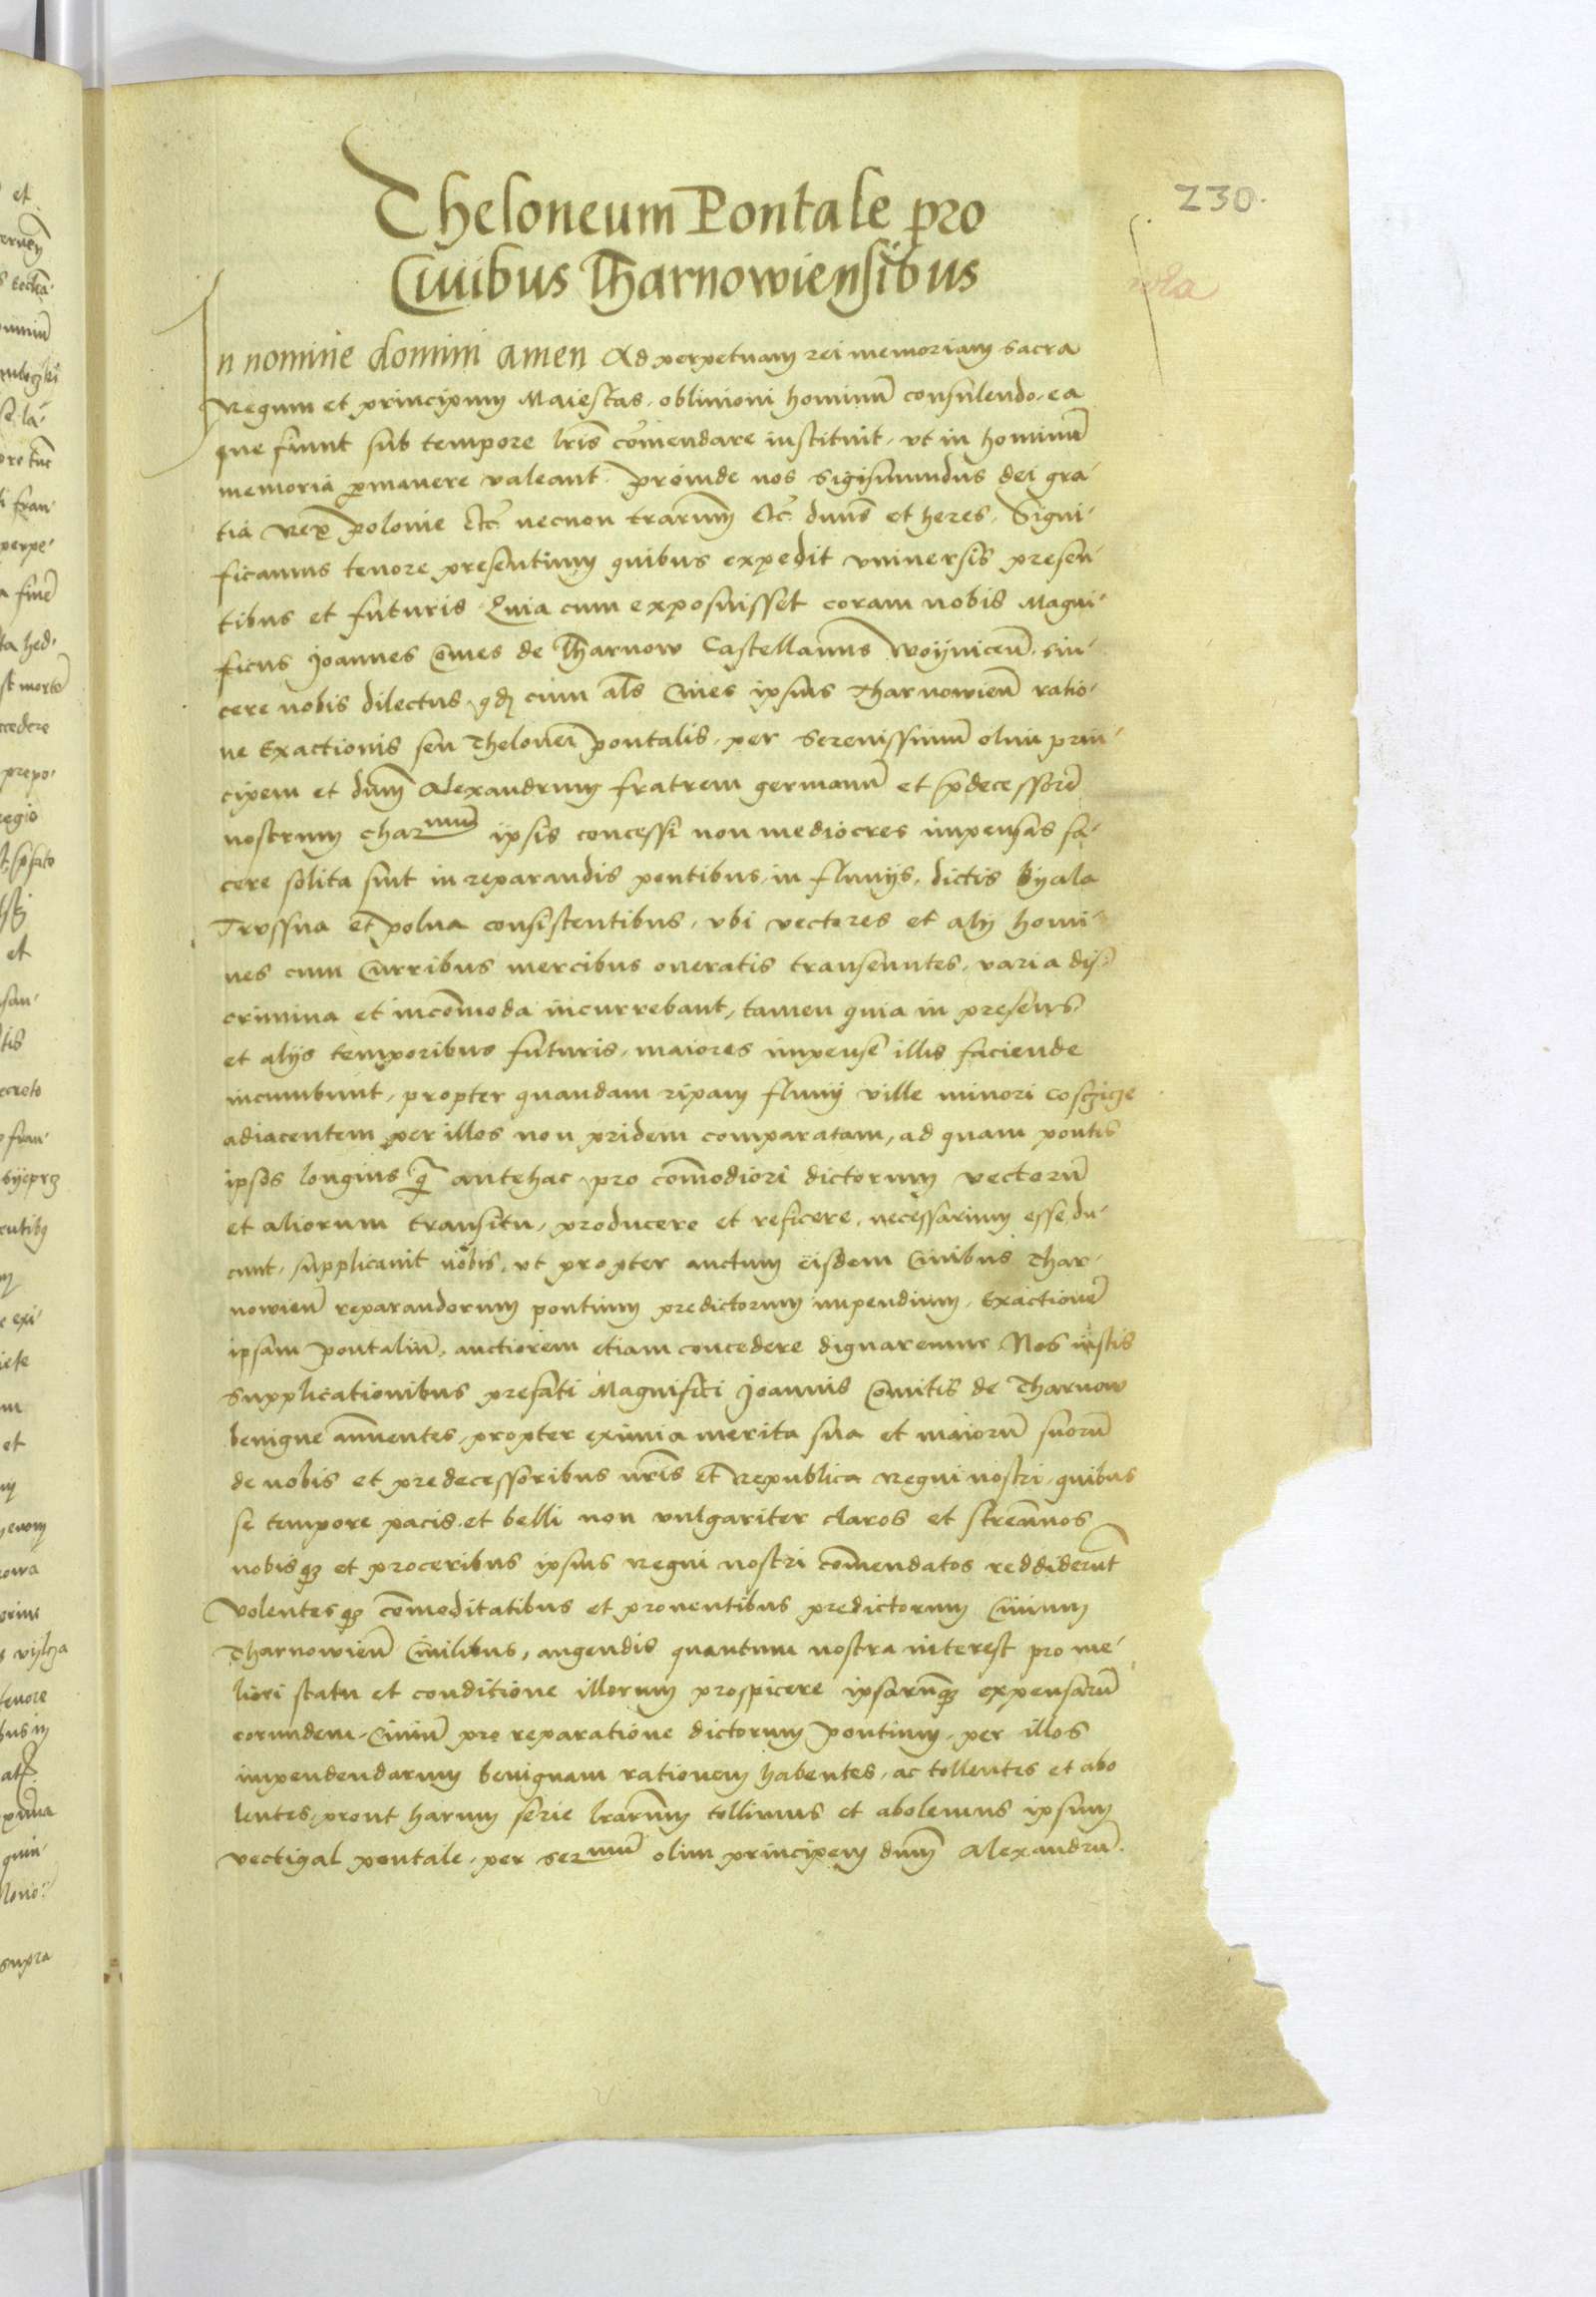 230.
Theloneum Pontale pro
Ciuibus Tharnowiensibus
In nomine domini amen Ad perpetuam rei memoriam sacra
Regum et principum Maiestas, obliuioni hominū consulendo, ea
que fiunt sub tempore lrīs cōmendare instituit, vt in hominū
memoria permanere valeant. Proinde nos Sigismundus dei gra-
tia Rex Polonie Etc necnon trarum Etc dnūs et heres, Signi-
ficamus tenore presentium quibus expedit vniuersis presen-
tibus et futuris. Quia cum exposuisset coram nobis Magni-
ficus Joannes Comes de Tharnow Castellanus Woyniceñ, sin-
cere nobis dilectus, qd cum als Ciues ipsius Tharnowieñ ratio-
ne Exactionis seu Thelonei pontalis, per Serenissimū olim prin-
cipem et dnm̄ Alexandrum fratrem germanū et p̄decessorē
nostrum charmum ipsis concessi non mediocres impensas fa-
cere solita sint in reparandis pontibus, in fluuijs, dictis Byala
Trssna et polna consistentibus, vbi vectores et alij homi-
nes cum Curribus mercibus oneratis transeuntes, varia dis-
crimina et incōmoda incurrebant, tamen quia in presens
et alijs temporibus futuris, maiores impense illis faciende
incumbunt, propter quandam ripam fluuij ville minori Coszicze
adiacentem per illos non pridem comparatam, ad quam pontes
ipsos longius q̄ antehac, pro cōmodiori dictorum vectorū
et aliorum transitu, producere et reficere, necessarium esse du-
cunt, supplicauit nobis, vt propter auctum eisdem Ciuibus Thar-
nowieñ reparandorum pontium predictorum impendium, Exactionē
ipsam pontaliū, auctiorem etiam concedere dignaremur. Nos iustis
supplicationibus prefati Magnifici Joannis Comitis de Tharnow
benigne annuentes, propter eximia merita sua et maiorū suorū
de nobis et predecessoribus nr̄is et Republica Regni nostri, quibus
se tempore pacis et belli non vulgariter claros et strennuos
nobisq3 et proceribus ipsius Regni nostri cōmendatos reddiderunt
Volentesq3 cōmoditatibus et prouentibus predictorum Ciuium
Tharnowieñ Ciuilibus, augendis quantum nostra interest pro me-
liori statu et conditione illorum prospicere ipsarūq3 expensarū
eorundem, Ciuiū pro reparatione dictorum pontium, per illos
impendendarum benignam rationem habentes, ac tollentes et abo
lentes, prout harum serie lrarum tollimus et abolemus ipsum
vectigal pontale, per sermum olim principem dnm̄ Alexandrū.